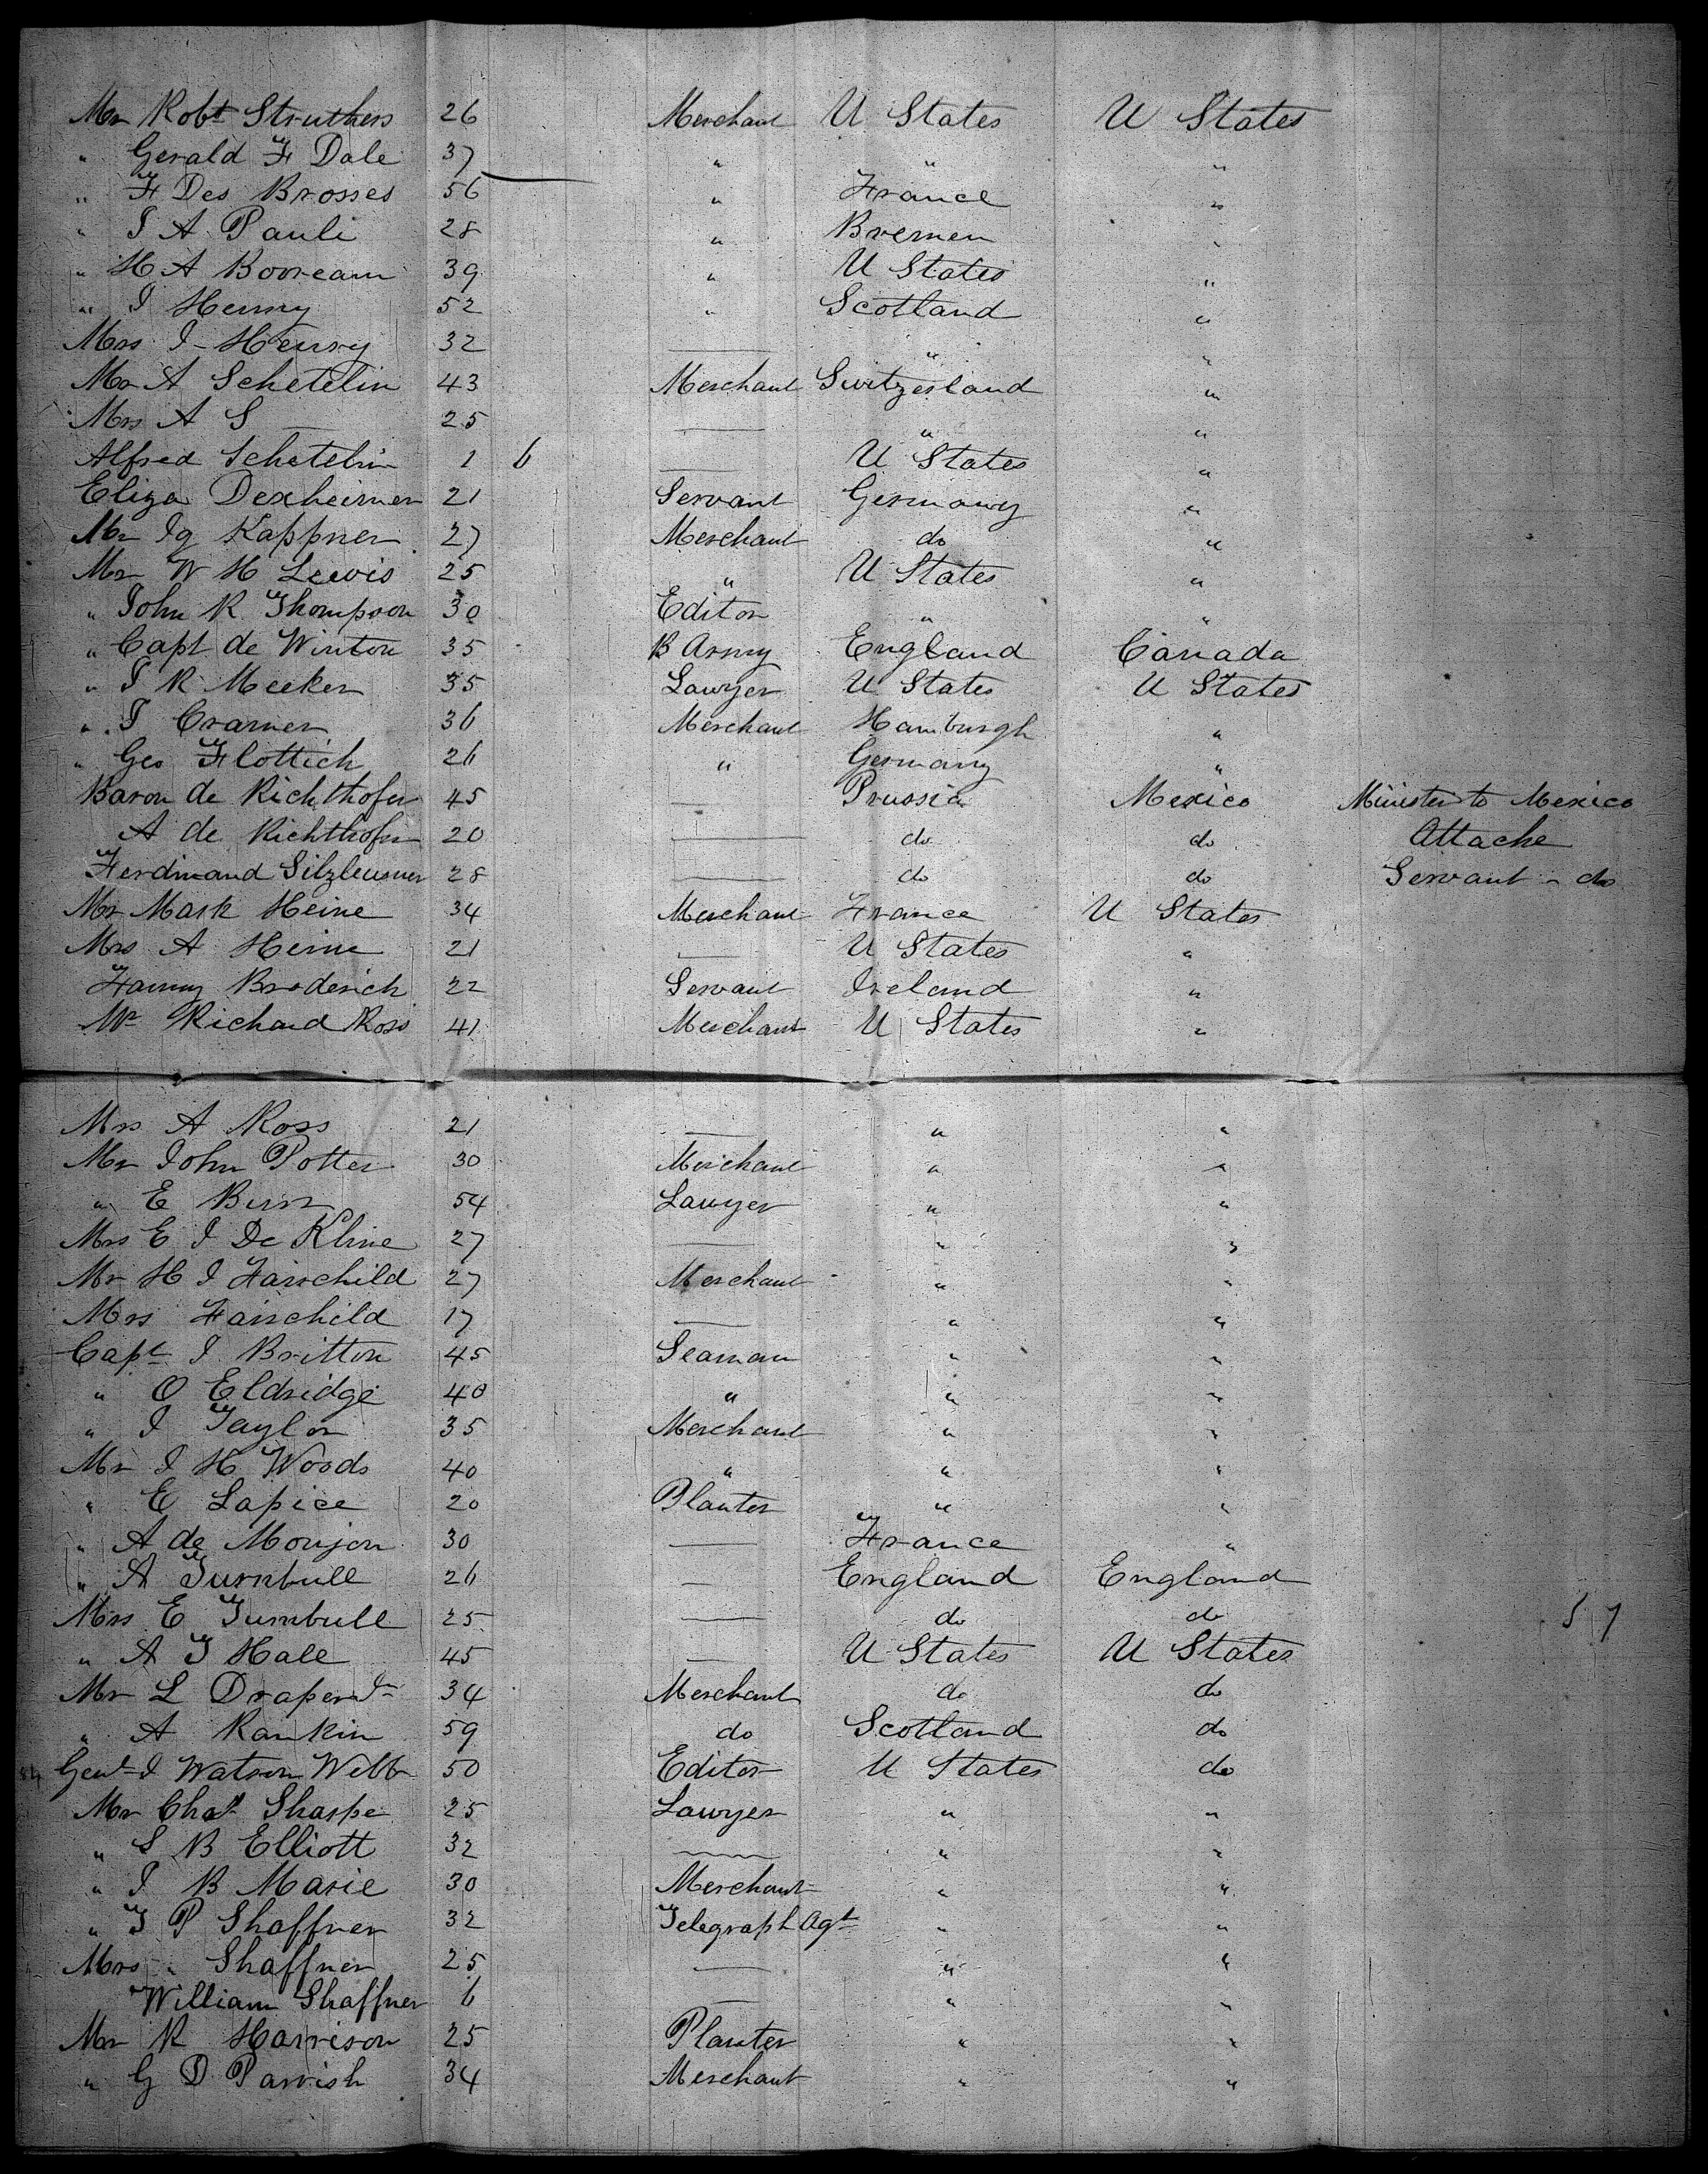 Mr Robt Struthers 26 Merchant U States U States
" Gerald F Dale 37 " " "
" F Des Brosses 56 " France "
" J A Pauli 28 " Bremen "
" H A Booream 39 " U States "
" J Henry 52 " Scotland "
Mrs J Henry 32 — " "
Mr A Schetelin 43 Merchant Switzerland "
Mrs A S — 25 — " "
Alfred Schetelin 1 6 — U States "
Eliza Dexheimer 21 Servant Germany "
Mr Ig Kappner 27 Merchant do "
Mr W H Lewis 25 " U States "
" John R Thompson 30 Editor " "
" Capt de Winton 35 B Army England Canada
" J R Meeker 35 Lawyer U States U States
" J Cramer 36 Merchant Hamburgh "
" Geo Flottich 26 " Germany "
Baron de Richthofen 45 — Prussia Mexico Minister to Mexico
A de Richthofen 20 — do do Attache
Ferdinand 28 — do do Servant - do
Mr Mark Heine 34 Merchant France U States
Mrs A Heine 21 — U States "
Fanny Broderich 22 Servant Ireland "
Mr Richard Ross 41 Merchant U States "
Mrs A Ross 21 — " "
Mr John Potter 30 Merchant " "
" E Burr 54 Lawyer " "
Mrs E J De Kline 27 — " "
Mr H J Fairchild 27 Merchant " "
Mrs Fairchild 17 — " "
Capt J Britton 45 Seaman " "
" O Eldridge 40 " " "
" J Taylor 35 Merchant " "
Mr J H Woods 40 " " "
" E Lapice 20 Planter " "
" A de Monjon 30 — France "
" A Turnbull 26 — England England
Mrs E Turnbull 25 — do do 57
" A T Hall 45 — U States U States
Mr L Draper Jr 34 Merchant do do
" A Rankin 59 do Scotland do
Genl J Watson Webb 50 Editor U States do
Mr Chas Sharpe 25 Lawyer " "
" S B Elliott 32 — " "
" J B Marie 30 Merchant " "
" T P Shaffner 32 Telegraph Agt " "
Mrs " Shaffner 25 — " "
William Shaffner 6 — " "
Mr R Harrison 25 Planter " "
" G D Parrish 34 Merchant " "